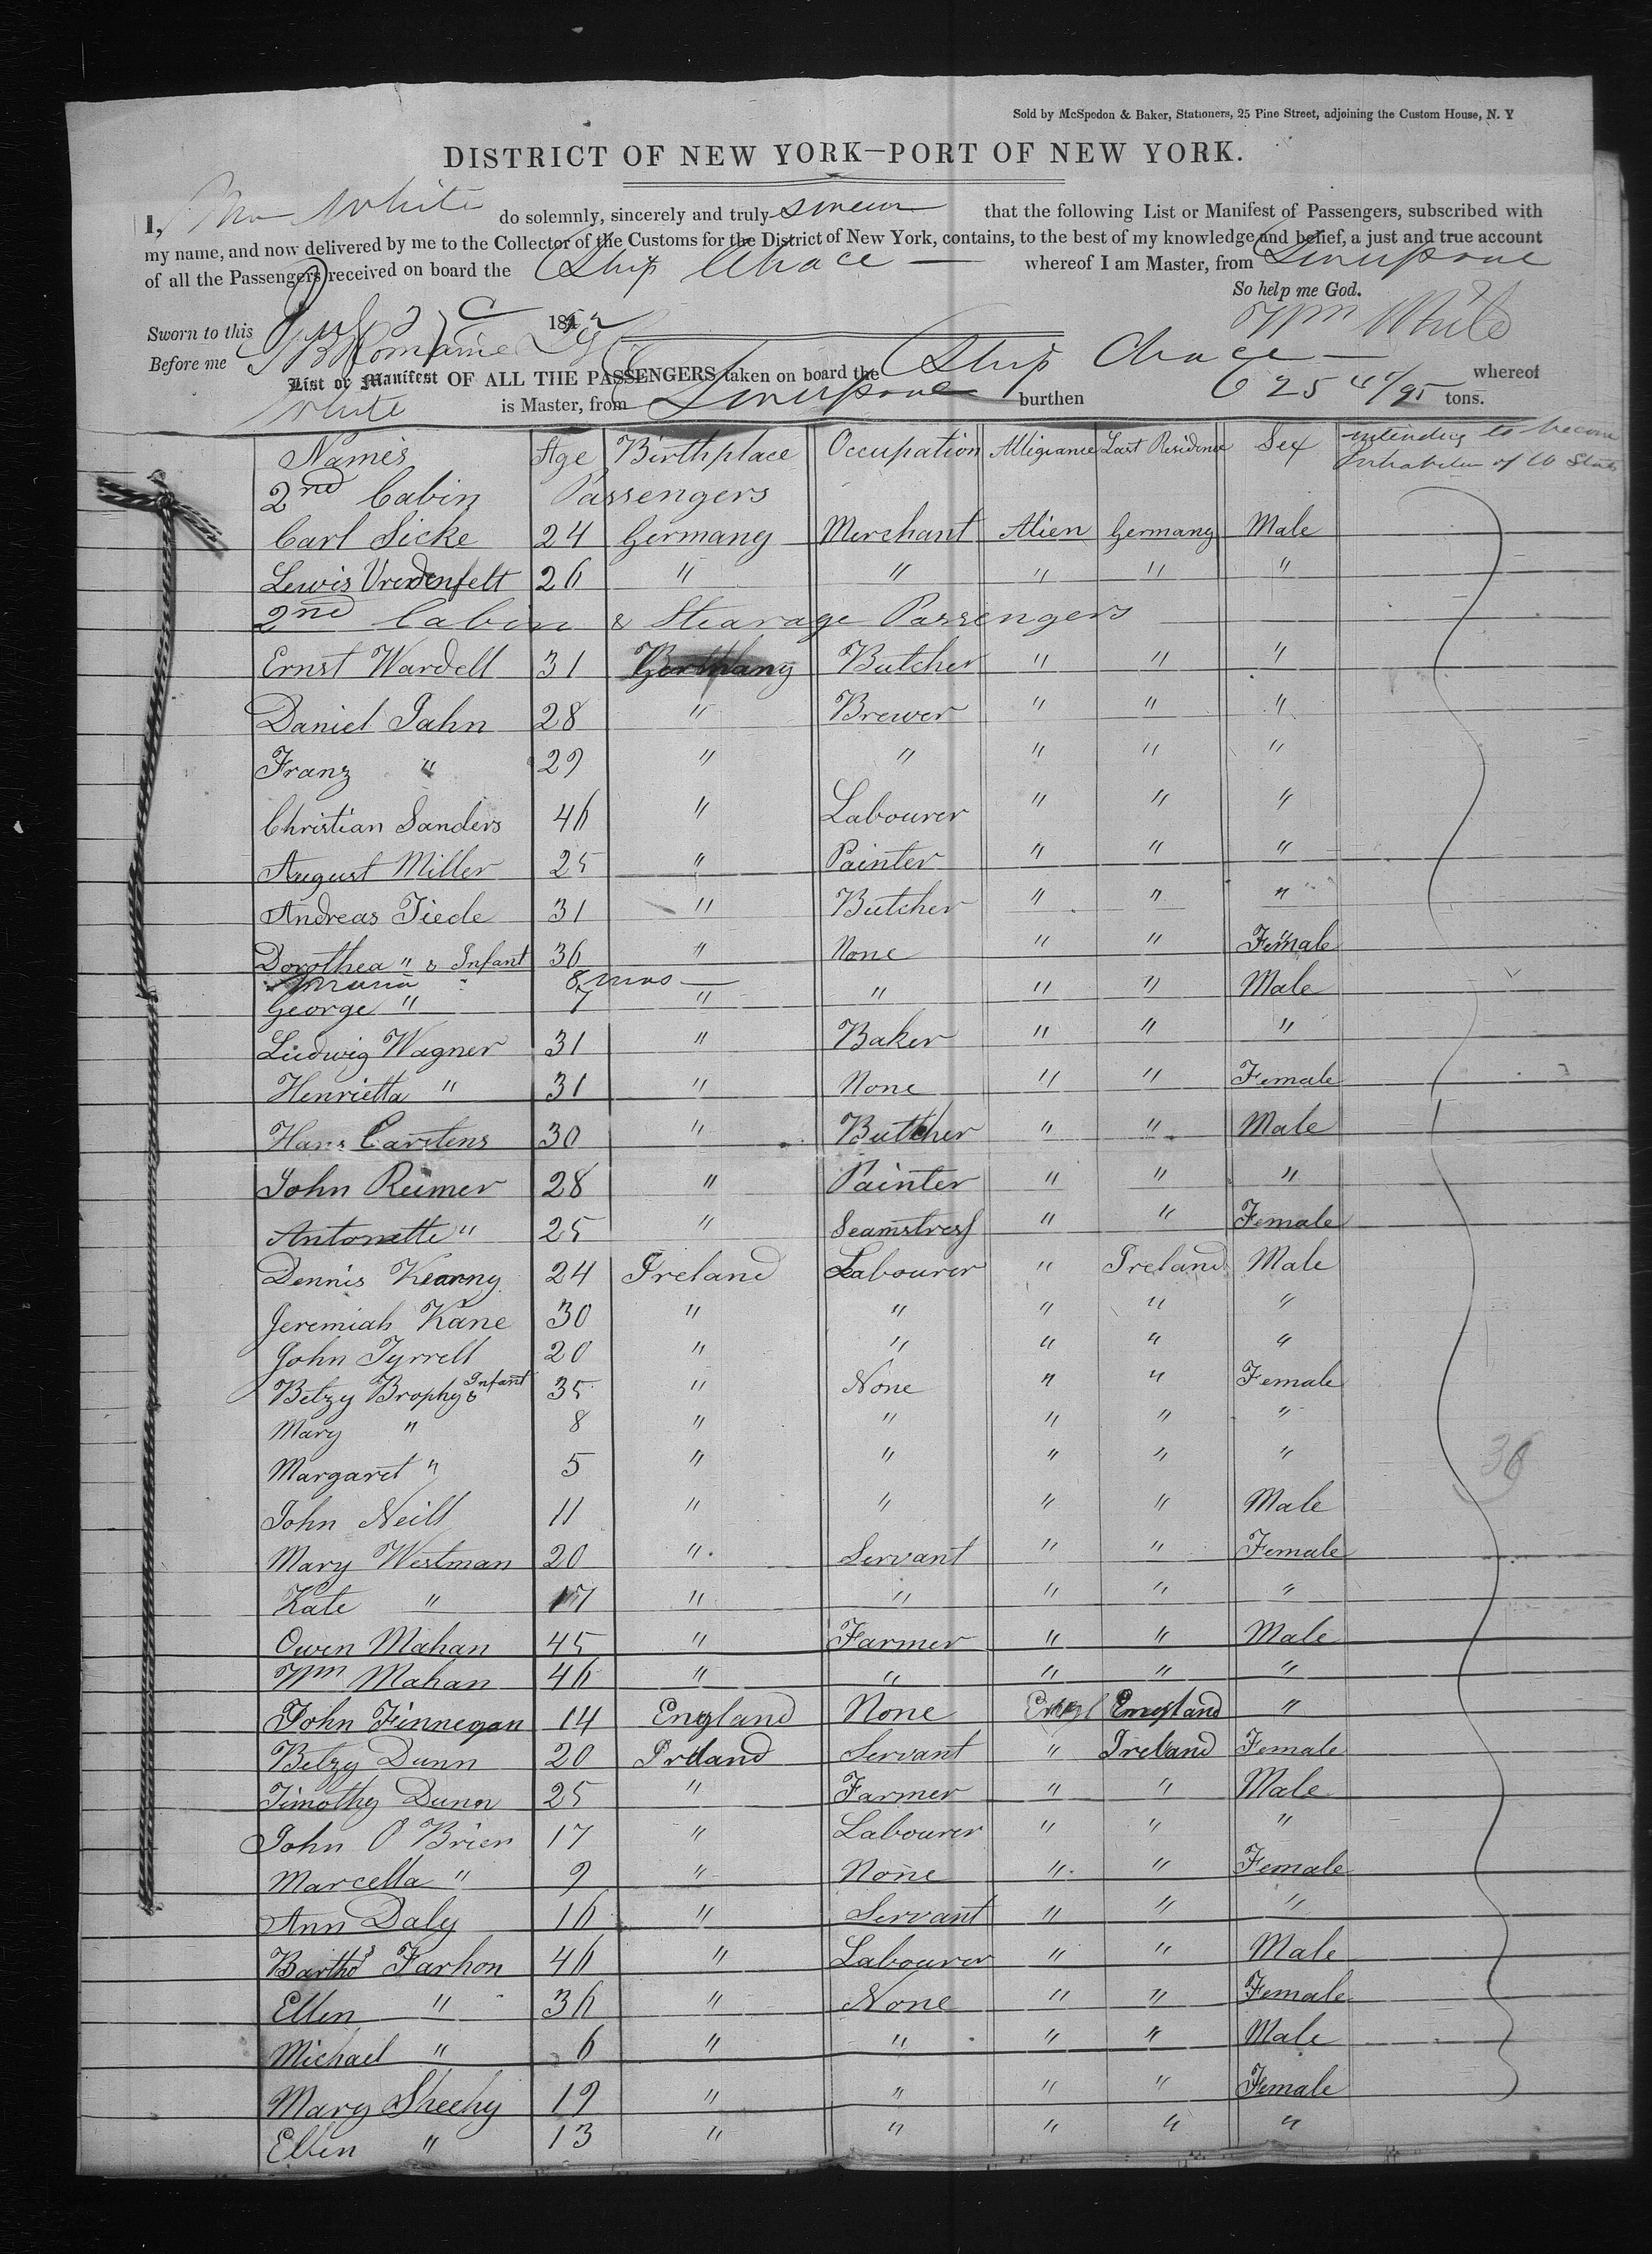 Sold by McSpedon & Baker, Stationers, 25 Pine Street, adjoining the Custom House, N. Y
DISTRICT OF NEW YORK—PORT OF NEW YORK.
I, Wm White do solemnly, sincerely and truly swear that the following List or Manifest of Passengers, subscribed with
my name, and now delivered by me to the Collector of the Customs for the District of New York, contains, to the best of my knowledge and belief, a just and true account
of all the Passengers received on board the Ship Chace — whereof I am Master, from Liverpool
So help me God.
Sworn to this 1852 Wm White
Before me
List or Manifest OF ALL THE PASSENGERS taken on board the Ship Chace — whereof
White is Master, from Liverpool burthen 625 tons.
Names Age Birthplace Occupation Alligiance Last Residence Sex intending to become
Inhabitan of U States
2nd Cabin Passengers
Carl Sicke 24 Germany Merchant Alien Germany Male
Lewis Vredenfelt 26 " " " " "
2nd Cabin & Stearage Passengers
Ernst Wardell 31 Germany Butcher " " "
Daniel Jahn 28 " Brewer " " "
Franz " 29 " " " " "
Christian Sanders 46 " Labourer " " "
August Miller 25 " Painter " " "
Andreas Tiede 31 " Butcher " " "
Dorothea " & Infant 36 " None " " Female
8 mos —
George " 7 " " " " Male
Ludwig Wagner 31 " Baker " " "
Henrietta " 31 " None " " Female
Hans Carstens 30 " Butcher " " Male
John Reimer 28 " Painter " " "
Antonette " 25 " Seamstress " " Female
Dennis Kearny 24 Ireland Labourer " Ireland Male
Jeremiah Kane 30 " " " " "
John Tyrrell 20 " " " " "
Betzy Brophy & Infant 35 " None " " Female
Mary " 8 " " " " "
Margaret " 5 " " " " "
36
John Neill 11 " " " " Male
Mary Westman 20 " Servant " " Female
Kate " 17 " " " " "
Owen Mahan 45 " Farmer " " Male
Wm Mahan 46 " " " " "
John Finnegan 14 England None Engl England "
Betzy Dunn 20 Ireland Servant " Ireland Female
Timothy Dunn 25 " Farmer " " Male
John O'Brien 17 " Labourer " " "
Marcella " 9 " None " " Female
Ann Daly 16 " Servant " " "
Bartho Farhon 46 " Labourer " " Male
Ellen " 36 " None " " Female
Michael " 6 " " " " Male
Mary Sheehy 19 " " " " Female
Ellen " 13 " " " " "